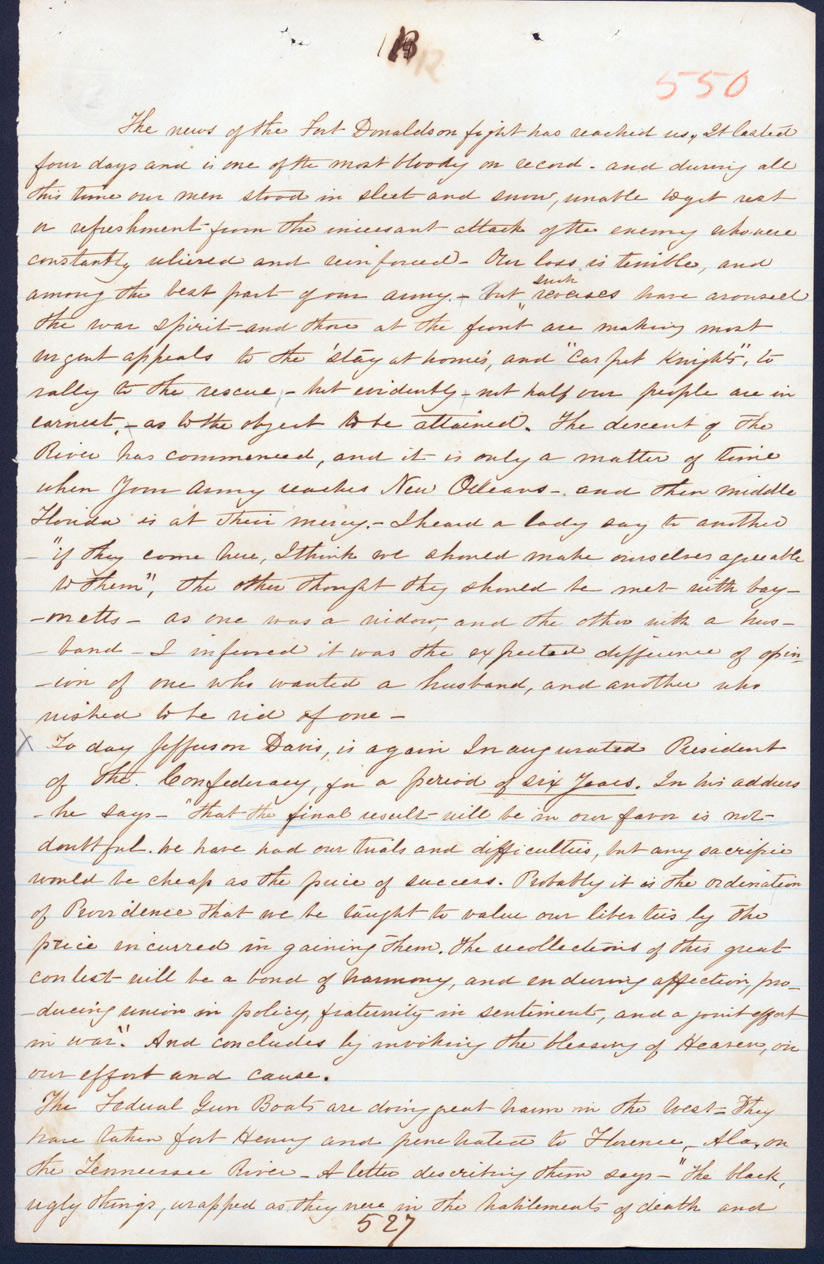 550
The news of the Fort Donaldson fight has reached us, It lasted
four days and is one of the most bloody on record - and during all
this time our men stood in sleet and snow, unable to get rest
or refreshment from the incessant attack of the enemy who were
constantly relieved and reinforced - Our loss is terrible, and
among the best part of our army - but such reverses have aroused
the war spirit - and those at the "front" are making most
urgent appeals to the 'stay at homes', and "Carpet Knights", to
rally to the rescue, - but evidently - not half our people are in
earnest, - as to the object to be attained. The descent of the
River has commenced, and it is only a matter of time
when your army reaches New Orleans - and then middle
Florida is at their mercy. - I heard a lady say to another
"if they come here, I think we should make ourselves agreeable
to them", the other thought they should be met with bay-
-onetts - as one was a widow, and the other with a hus-
-band - I inferred it was the expected difference of opin-
-ion of one who wanted a husband, and another who
wished to be rid of one -
X To day Jefferson Davis, is again Inaugurated President
of the Confederacy, for a period of six years. In his address
- he says - "that the final result will be in our favor is not
doubtful. We have had our trials and difficulties, but any sacrifice
would be cheap as the price of success. Probably it is the ordination
of Providence that we be taught to value our liberties by the
price incurred in gaining them. The recollections of this great
contest will be a bond of harmony, and enduring affection, pro-
-ducing union in policy, fraternity in sentiment, and a joint effort
in war". And concludes by invoking the blessing of Heaven, on
our effort and cause.
The Federal Gun Boats are doing great harm in the West - They
have taken fort Henry and penetrated to Florence, Ala, on
the Tennessee River - A letter describing them says - "The black,
ugly things, wrapped as they were in the habilements of death and
527